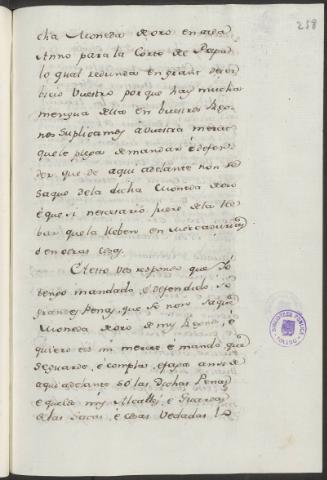 258
cha Moneda de oro en cada
Anno para la Corte de Papa
lo qual redunda en grant deser
bicio vuestro porque hay mucha
mengua della en buestros Rego
nos Suplicamos a vuestra merced
que le plega de mandar é defen
der que de aqui adelante non se
saque de la dicha Moneda de oro
é que si necesario fuere de la lle
bar que la lleben en mercadurias
ó en otras cosas
A esto vos respondo que Yo
tengo mandado, é defendido so
grandes Penas que se non saque
Moneda de oro de mis Regnos, é
quiero es mi merced é mando que
se guarde, é compla, é faga ansi de
aqui adelante so las dichas Penas
é que los mis Alcalles, é Guardas
de las Sacas, é cosas Vedadas lo
BIBLIOTECA PUBLICA
TOLEDO